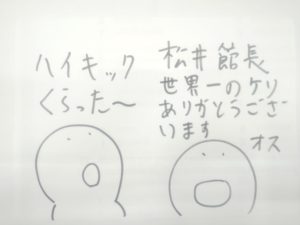 ハイキック
くらった～
松井館長
世界一のケリ
ありがとうござ
います
オス